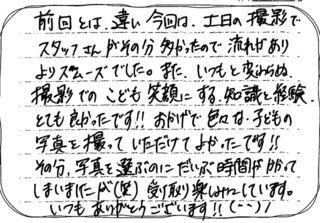 前回とは、違い今回は、土日の撮影で
スタッフさんがその分多かったので流れがあり
よりスムーズでした。また、いつもと変わらぬ、
撮影での こども笑顔にする、知識と経験、
とても良かったです!! おかげで色々な子どもの
写真を撮っていただけてよかったです!!
その分、写真を選ぶのにだいぶ時間がかかって
しまいましたが(笑) 受け取り楽しみにしています。
いつもありがとうございます!! (^-^)/